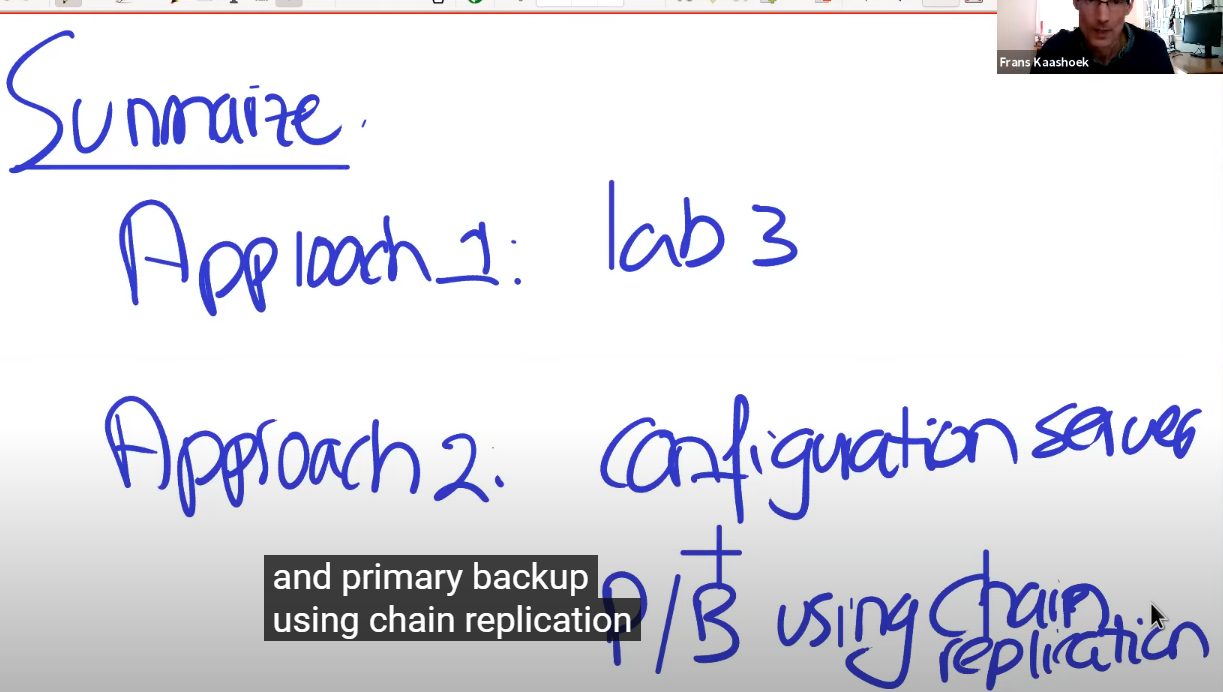 Frans Kaashoek
Summaize.
Approach 1: lab 3
Approach 2. configuration server
+
P/B using chain
replication
and primary backup
using chain replication